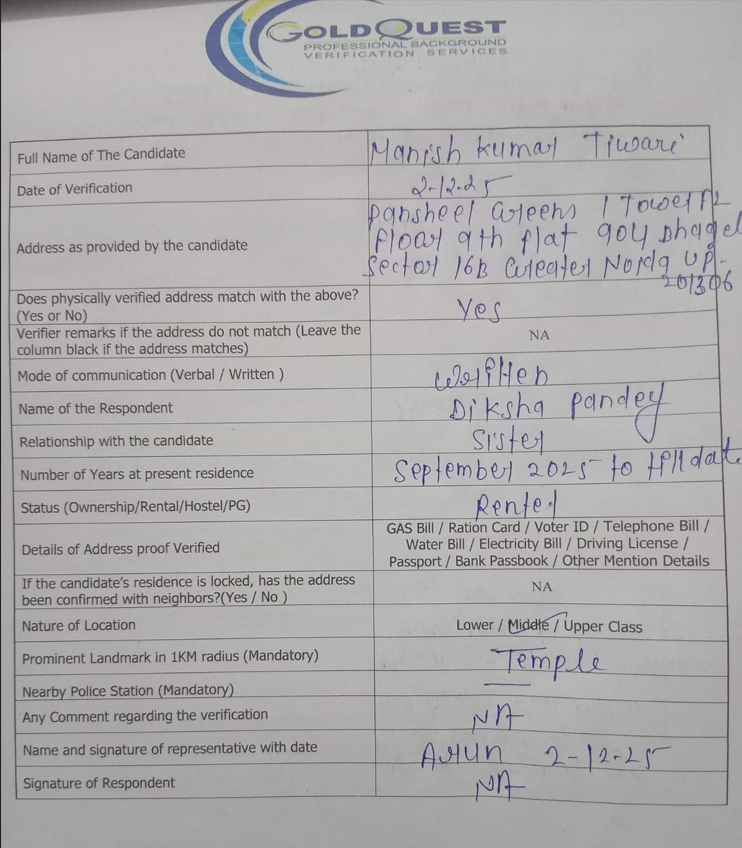 GOLDQUEST
PROFESSIONAL BACKGROUND
VERIFICATION SERVICES
Full Name of The Candidate Manish Kumar Tiwari
Date of Verification 2-12-25
Address as provided by the candidate Pansheel Greens 1 Tower A2
Floar 9th flat 904 Dhagel
Sector 16B Greater Noida UP.
201306
Does physically verified address match with the above?
(Yes or No) Yes
Verifier remarks if the address do not match (Leave the
column black if the address matches) NA
Mode of communication (Verbal / Written ) Worften
Name of the Respondent Diksha Pandey
Relationship with the candidate Sister
Number of Years at present residence September 2025 to till date
Status (Ownership/Rental/Hostel/PG) Rented
Details of Address proof Verified GAS Bill / Ration Card / Voter ID / Telephone Bill /
Water Bill / Electricity Bill / Driving License /
Passport / Bank Passbook / Other Mention Details
If the candidate's residence is locked, has the address
been confirmed with neighbors?(Yes / No ) NA
Nature of Location Lower / Middle / Upper Class
Prominent Landmark in 1KM radius (Mandatory) Temple
Nearby Police Station (Mandatory)
Any Comment regarding the verification NA
Name and signature of representative with date Arjun 2-12-25
Signature of Respondent NA